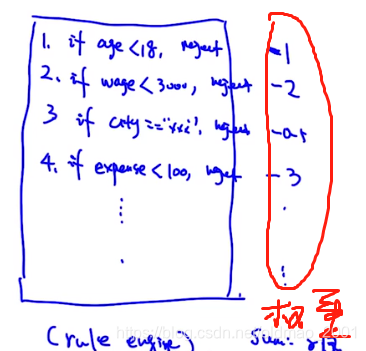 1. if age <18, reject -1
2. if wage <3000, reject -2
3 if city == "xxx", reject
4. if expense <100, reject -3
权重
(rule engine) sum: